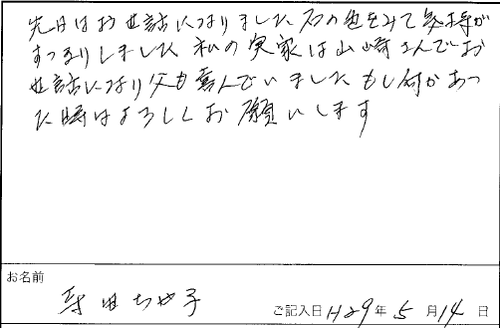 先日はお世話になりました石の色をみて気持が
すっきりしました私の実家は山崎さんでお
世話になり父も喜んでいましたもし何かあっ
た時はよろしくお願いします
お名前
寺田ちや子
ご記入日 H29年 5月 14日